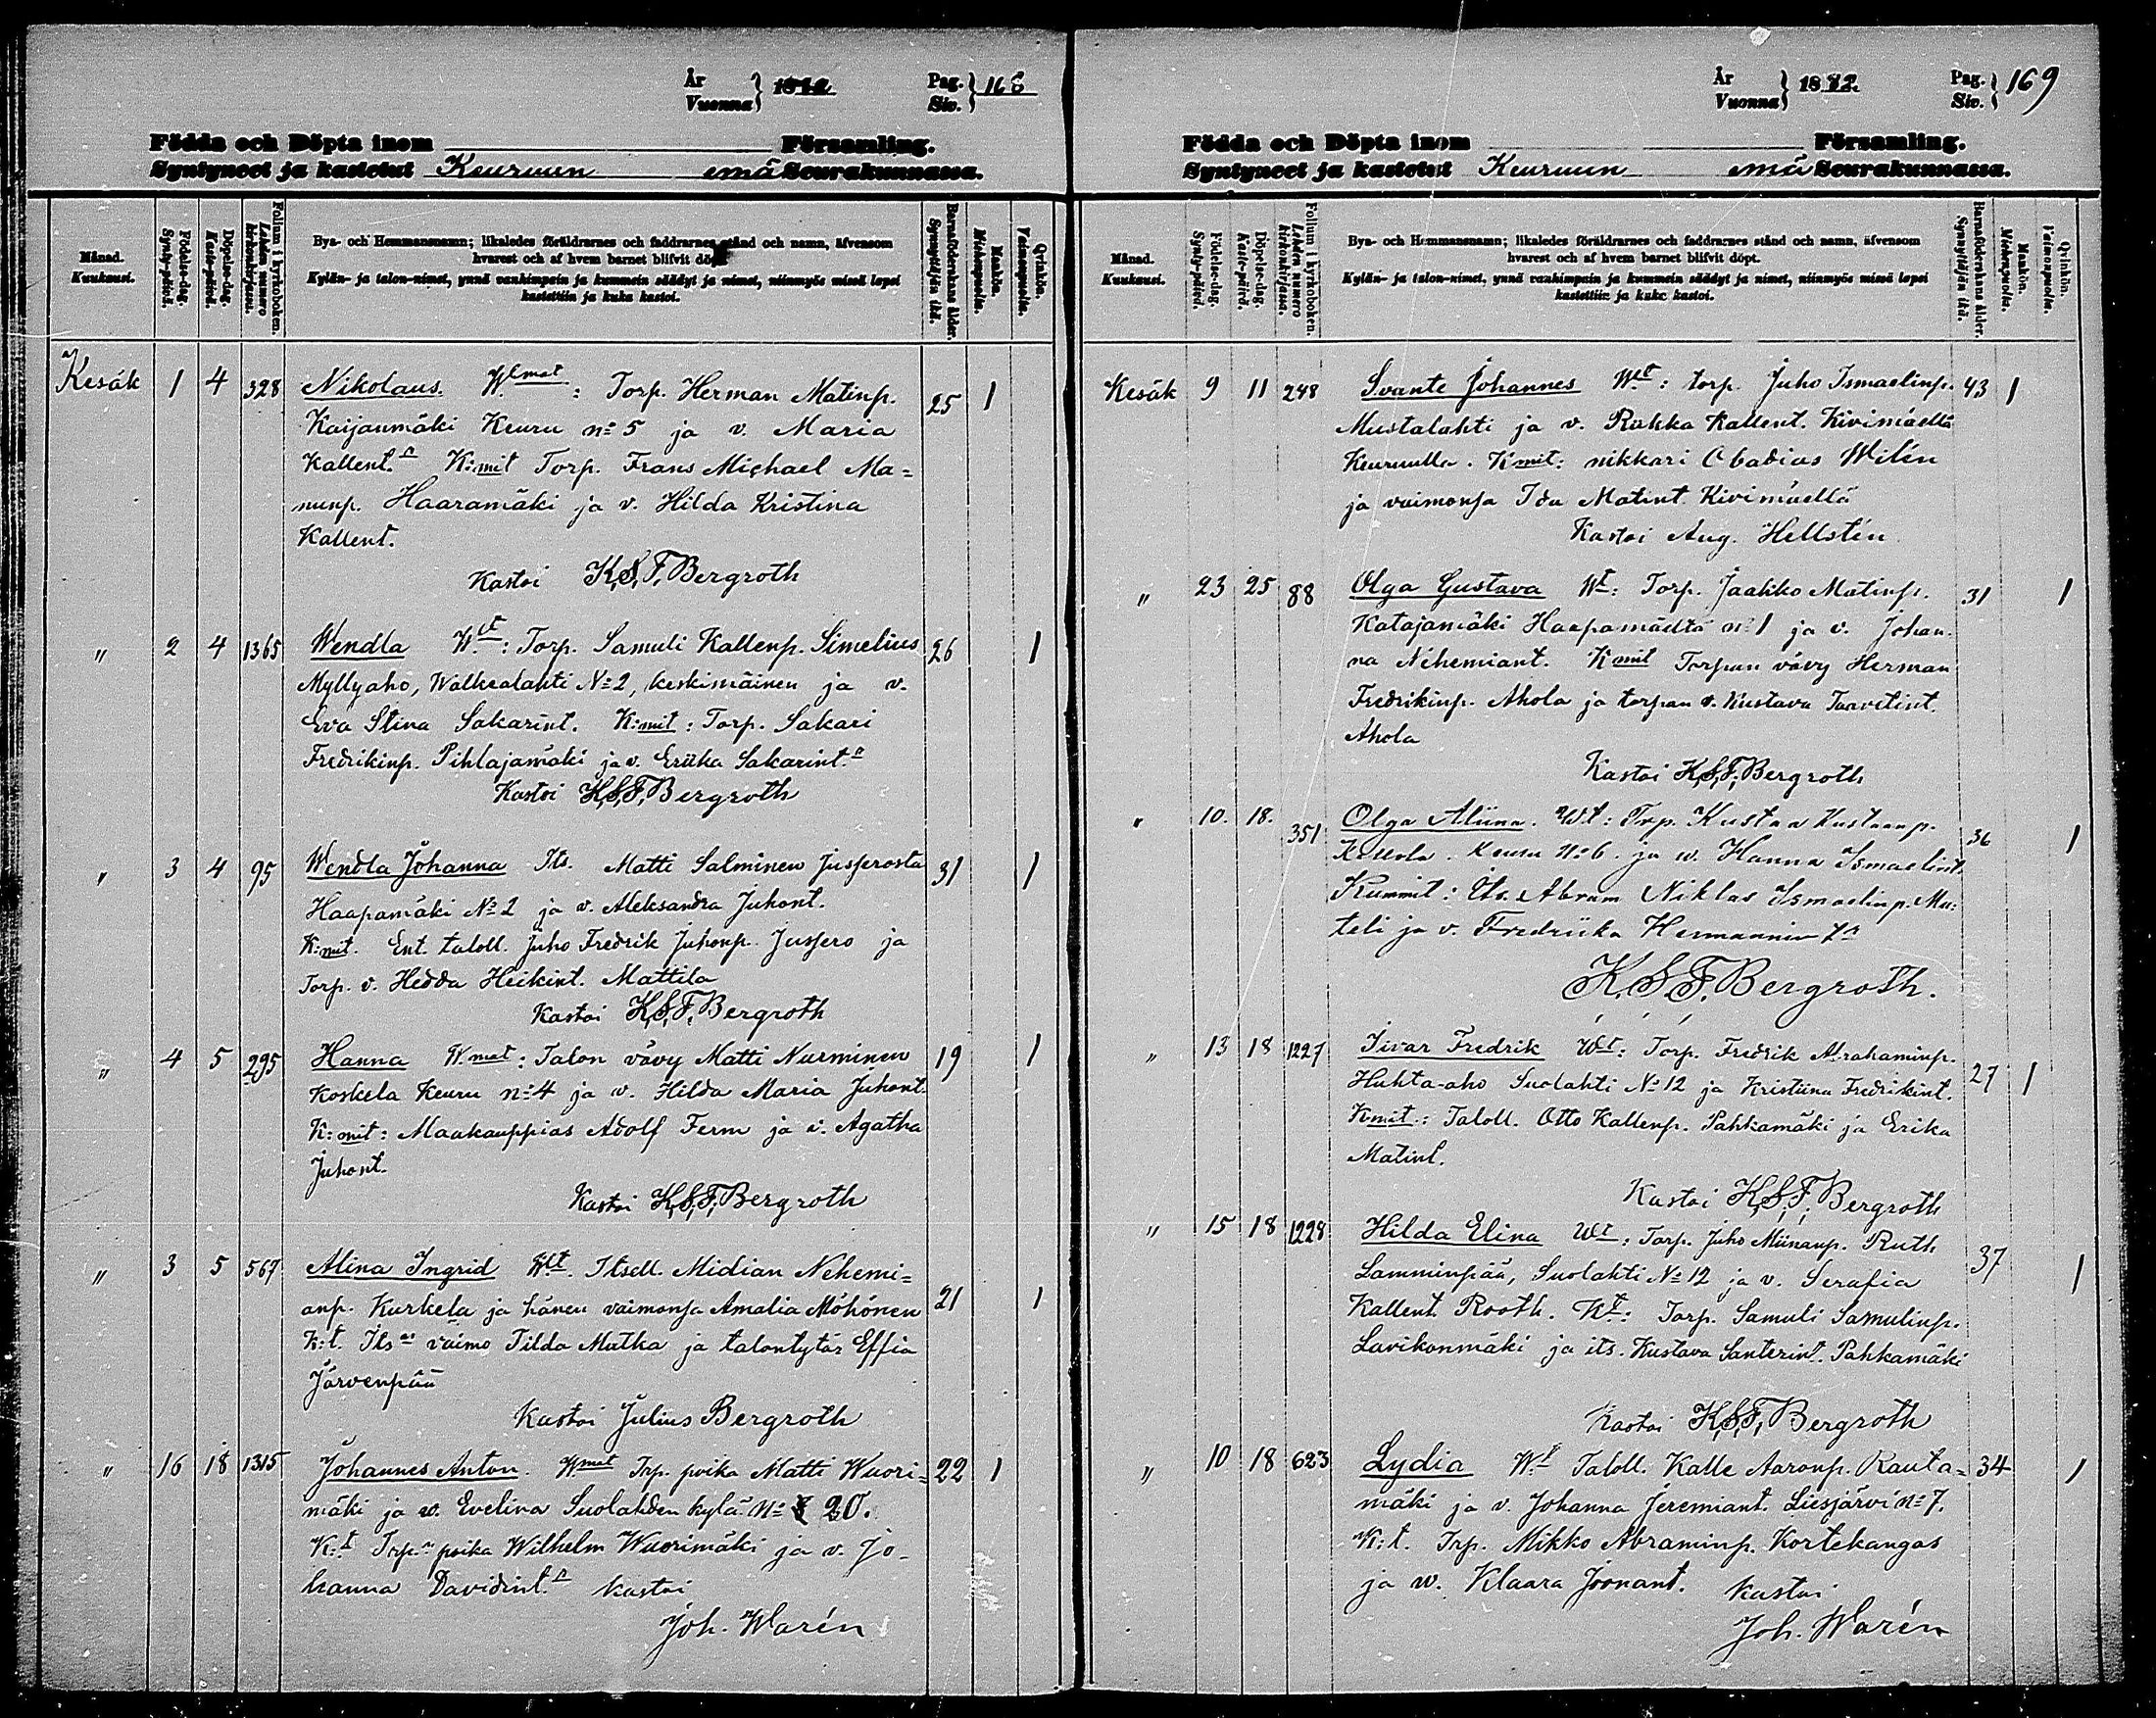 År
Vuonna } 18
Pag.
Siv. } 168
Födda och Döpta inom Församling.
Syntyneet ja kastetut Keuruun emä Seurakunnassa.
Månad.
Kuukausi.
Födelse-dag.
Synty-päivä.
Döpelse-dag.
Kaste-päivä.
Folium i kyrkoboken.
Lehden numero
kirkonkirjassa.
Bya- och Hemmansnamn; likaledes föräldrarnes och faddrarnes stånd och namn, äfvensom
hvarest och af hvem barnet blifvit döpt.
Kylän- ja talon-nimet, ynnä vanhimpain ja kummein säädyt ja nimet, niinmyös missä lapsi
kastettiin ja kuka kastoi.
Barnaföderskans ålder.
Synnyttäjän ikä.
Mankön.
Miehenpuolta.
Qvinkön.
Vaimonpuolta.
Kesäk 1 4 328 Nikolaus. Wmat: Torp. Herman Matinp. 25 1
Kaijanmäki Keuru n:o 5 ja v. Maria
Kallent. K:mit Torp. Frans Michael Ma=
nunp. Haaramäki ja v. Hilda Kristina
Kallent.
Kastoi K.S.F. Bergroth
" 2 4 1365 Wendla Wt: Torp. Samuli Kallenp. Simelius 26 1
Myllyaho, Walkealahti N:o 2, keskimäinen ja v.
Eva Stina Sakarint. K:mit: Torp. Sakari
Fredrikinp. Pihlajamäki ja v. Eriika Sakarint.
Kastoi K.S.F. Bergroth
" 3 4 95 Wendla Johanna Its. Matti Salminen Jusserosta 31 1
Haapamäki N:o 2 ja v. Aleksandra Juhont.
K:mit. Ent. taloll. Juho Fredrik Juhonp. Jussero ja
Torp. v. Hedda Heikint. Mattila
Kastoi K.S.F. Bergroth
" 4 5 295 Hanna Wmat: Talon vävy Matti Nurminen 19 1
Koskela Keuru n:o 4 ja v. Hilda Maria Juhont.
K:mit: Maakauppias Adolf Ferm ja v. Agatha
Juhont.
Kastoi K.S.F. Bergroth
" 3 5 567 Alina Ingrid Wt. Itsell. Midian Nehemi= 21 1
anp. Kurkela ja hänen vaimonsa Amalia Möhönen
K:t. Its vaimo Tilda Matka ja talontytär Effia
Järvenpää
Kastoi Julius Bergroth
" 16 18 1315 Johannes Anton. Wmat Trp. poika Matti Wuori= 22 1
mäki ja w. Evelina Suolahden kylä N:o 20.
K:t Trp.n poika Wilhelm Wuorimäki ja v. Jo-
hanna Davidint. kastoi
Joh. Warén
År
Vuonna } 1872.
Pag.
Siv. } 169
Födda och Döpta inom Församling.
Syntyneet ja kastetut Keuruun emä Seurakunnassa.
Månad.
Kuukausi.
Födelse-dag.
Synty-päivä.
Döpelse-dag.
Kaste-päivä.
Folium i kyrkoboken.
Lehden numero
kirkonkirjassa.
Bya- och Hemmansnamn; likaledes föräldrarnes och faddrarnes stånd och namn, äfvensom
hvarest och af hvem barnet blifvit döpt.
Kylän- ja talon-nimet, ynnä vanhimpain ja kummein säädyt ja nimet, niinmyös missä lapsi
kastettiin ja kuka kastoi.
Barnaföderskans ålder.
Synnyttäjän ikä.
Mankön.
Miehenpuolta.
Qvinkön.
Vaimonpuolta.
Kesäk 9 11 248 Svante Johannes Wt: torp. Juho Ismaelinp. 43 1
Mustalahti ja v. Kallent. Kivimäellä
Keuruulla. Kmit: nikkari Obadias Wilén
ja vaimonsa Ida Matint. Kivimäellä
Kastoi Aug. Hellstén
" 23 25 88 Olga Gustava Wt: Torp. Jaakko Matinp. 31 1
Katajamäki Haapamäeltä n:o 1 ja v. Johan-
na Nehemiant. Kmit Torpan vävy Herman
Fredrikinp. Ahola ja torpan v. Kustava Taavetint.
Ahola
Kastoi K.S.F. Bergroth
" 10. 18. 351 Olga Aliina. Wt: Trp. Kustaa Kustaanp. 36 1
Keuru N:o 6. ja w. Hanna Ismaelint.
Kummit: Its. Abram Niklas Ismaelinp. Mu:
teli ja v. Fredriika Hermannin
K.S.F. Bergroth.
" 13 18 1227 Iivar Fredrik Wt: Torp. Fredrik Abrahaminp. 27 1
Huhta-aho Suolahti N:o 12 ja Kristiina Fredrikint.
K:mit.: Taloll. Otto Kallenp. Pahkamäki ja Erika
Matint.
Kastoi K.S.F. Bergroth
" 15 18 1228 Hilda Elina Wt: Torp. Juho Miinanp. Ruth 37 1
Lamminpää, Suolahti N:o 12 ja v. Serafia
Kallent. Rooth. Kt: Torp. Samuli Samulinp.
Lavikonmäki ja its. Kustava Santerint. Pahkamäki
Kastoi K.S.F. Bergroth
" 10 18 623 Lydia Wt Taloll. Kalle Aaronp. Rauta= 34 1
mäki ja v. Johanna Jeremiant. Liesjärvi n:o 7.
K:t. Trp. Mikko Abraminp. Kortekangas
ja w. Klaara Joonant. Kastoi
Joh. Warén